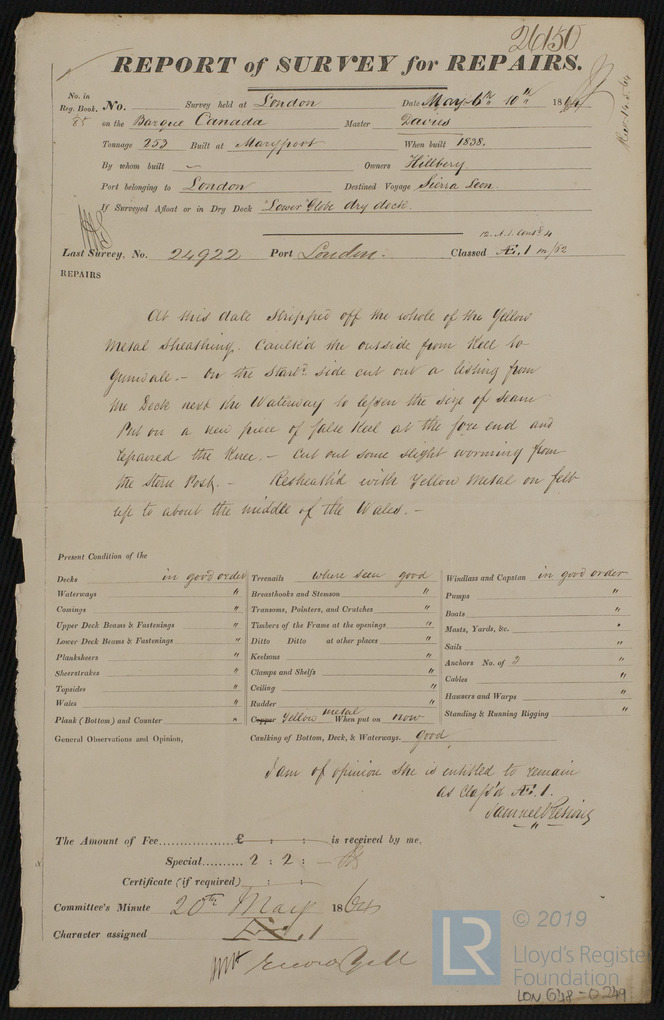 26150
REPORT of SURVEY for REPAIRS.
No. in Reg. Book. No. Survey held at London Date May 6th 10th 1864
85 on the Barque Canada Master Davies
Tonnage 253 Built at Maryport When built 1838.
By whom built — Owners Hillbery
Port belonging to London Destined Voyage Sierra Leon.
If Surveyed Afloat or in Dry Dock "Lower" Globe dry dock.
Last Survey, No. 24922 Port London. Classed Æ.1
REPAIRS
At this date Stripped off the whole of the Yellow
Metal Sheathing. Caulk'd the outside from Keel to
Gunwale. — On the Starbd side cut out a listing from
the Deck next the Waterway to lessen the size of seam
Put on a new piece of false Keel at the fore end and
repaired the Knee. — Cut out some slight worming from
the Stern Post. — Resheath'd with Yellow Metal on felt
up to about the middle of the Wales. —
Present Condition of the
Decks in good order
Waterways "
Comings "
Upper Deck Beams & Fastenings "
Lower Deck Beams & Fastenings "
Planksheers "
Sheerstrakes "
Topsides "
Wales "
Plank (Bottom) and Counter "
General Observations and Opinion,
Treenails where seen good
Breasthooks and Stemson "
Transoms, Pointers, and Crutches "
Timbers of the Frame at the openings "
Ditto Ditto at other places "
Keelsons "
Clamps and Shelfs "
Ceiling "
Rudder "
Copper Yellow metal When put on now
Caulking of Bottom, Deck, & Waterways. good
Windlass and Capstan in good order
Pumps "
Boats "
Masts, Yards, &c. "
Sails "
Anchors No. of 3 "
Cables "
Hawsers and Warps "
Standing & Running Rigging "
I am of opinion She is entitled to remain
as Class'd Æ.1.
Samuel Pleming
The Amount of Fee £ : : is received by me,
Special 2 : 2 : —
Certificate (if required) : :
Committee's Minute 20th May 1864
Character assigned Æ.1
© 2019
LR Lloyd's Register
Foundation
LON 648-0249